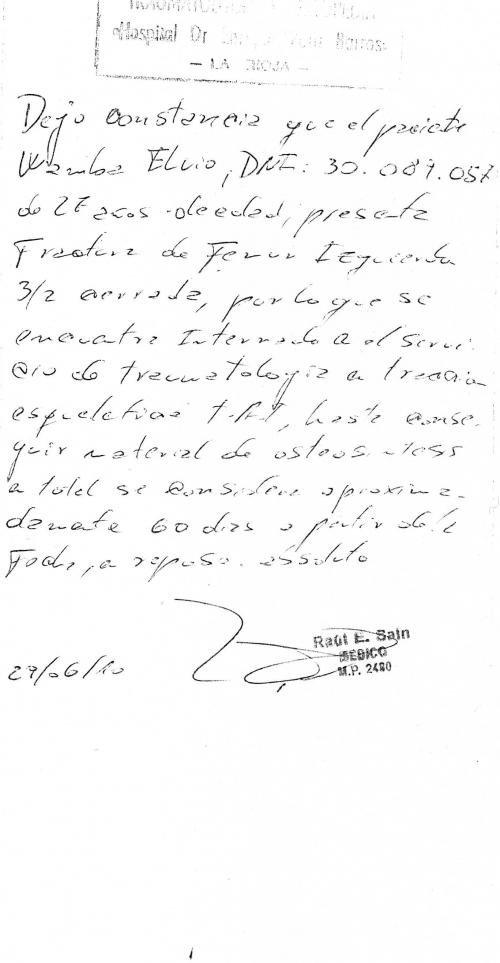 TRAUMATOLOGIA
Hospital Dr. Enrique Vera Barros
- LA RIOJA -
Dejo constancia que el paciente
Wamba Elvio, DNI: 30.089.057
de 27 años de edad, presenta
Fractura de Femur Izquierda
3/2 cerrada, por lo que se
encuentra Internado en el servi-
cio de traumatologia en traccion
esqueletica T.A.T, hasta conse-
guir material de osteosintesis
en total se considera aproxima-
damente 60 dias a partir de la
Fecha, en reposo absoluto
29/06/10
Raúl E. Sain
MEDICO
M.P. 2480